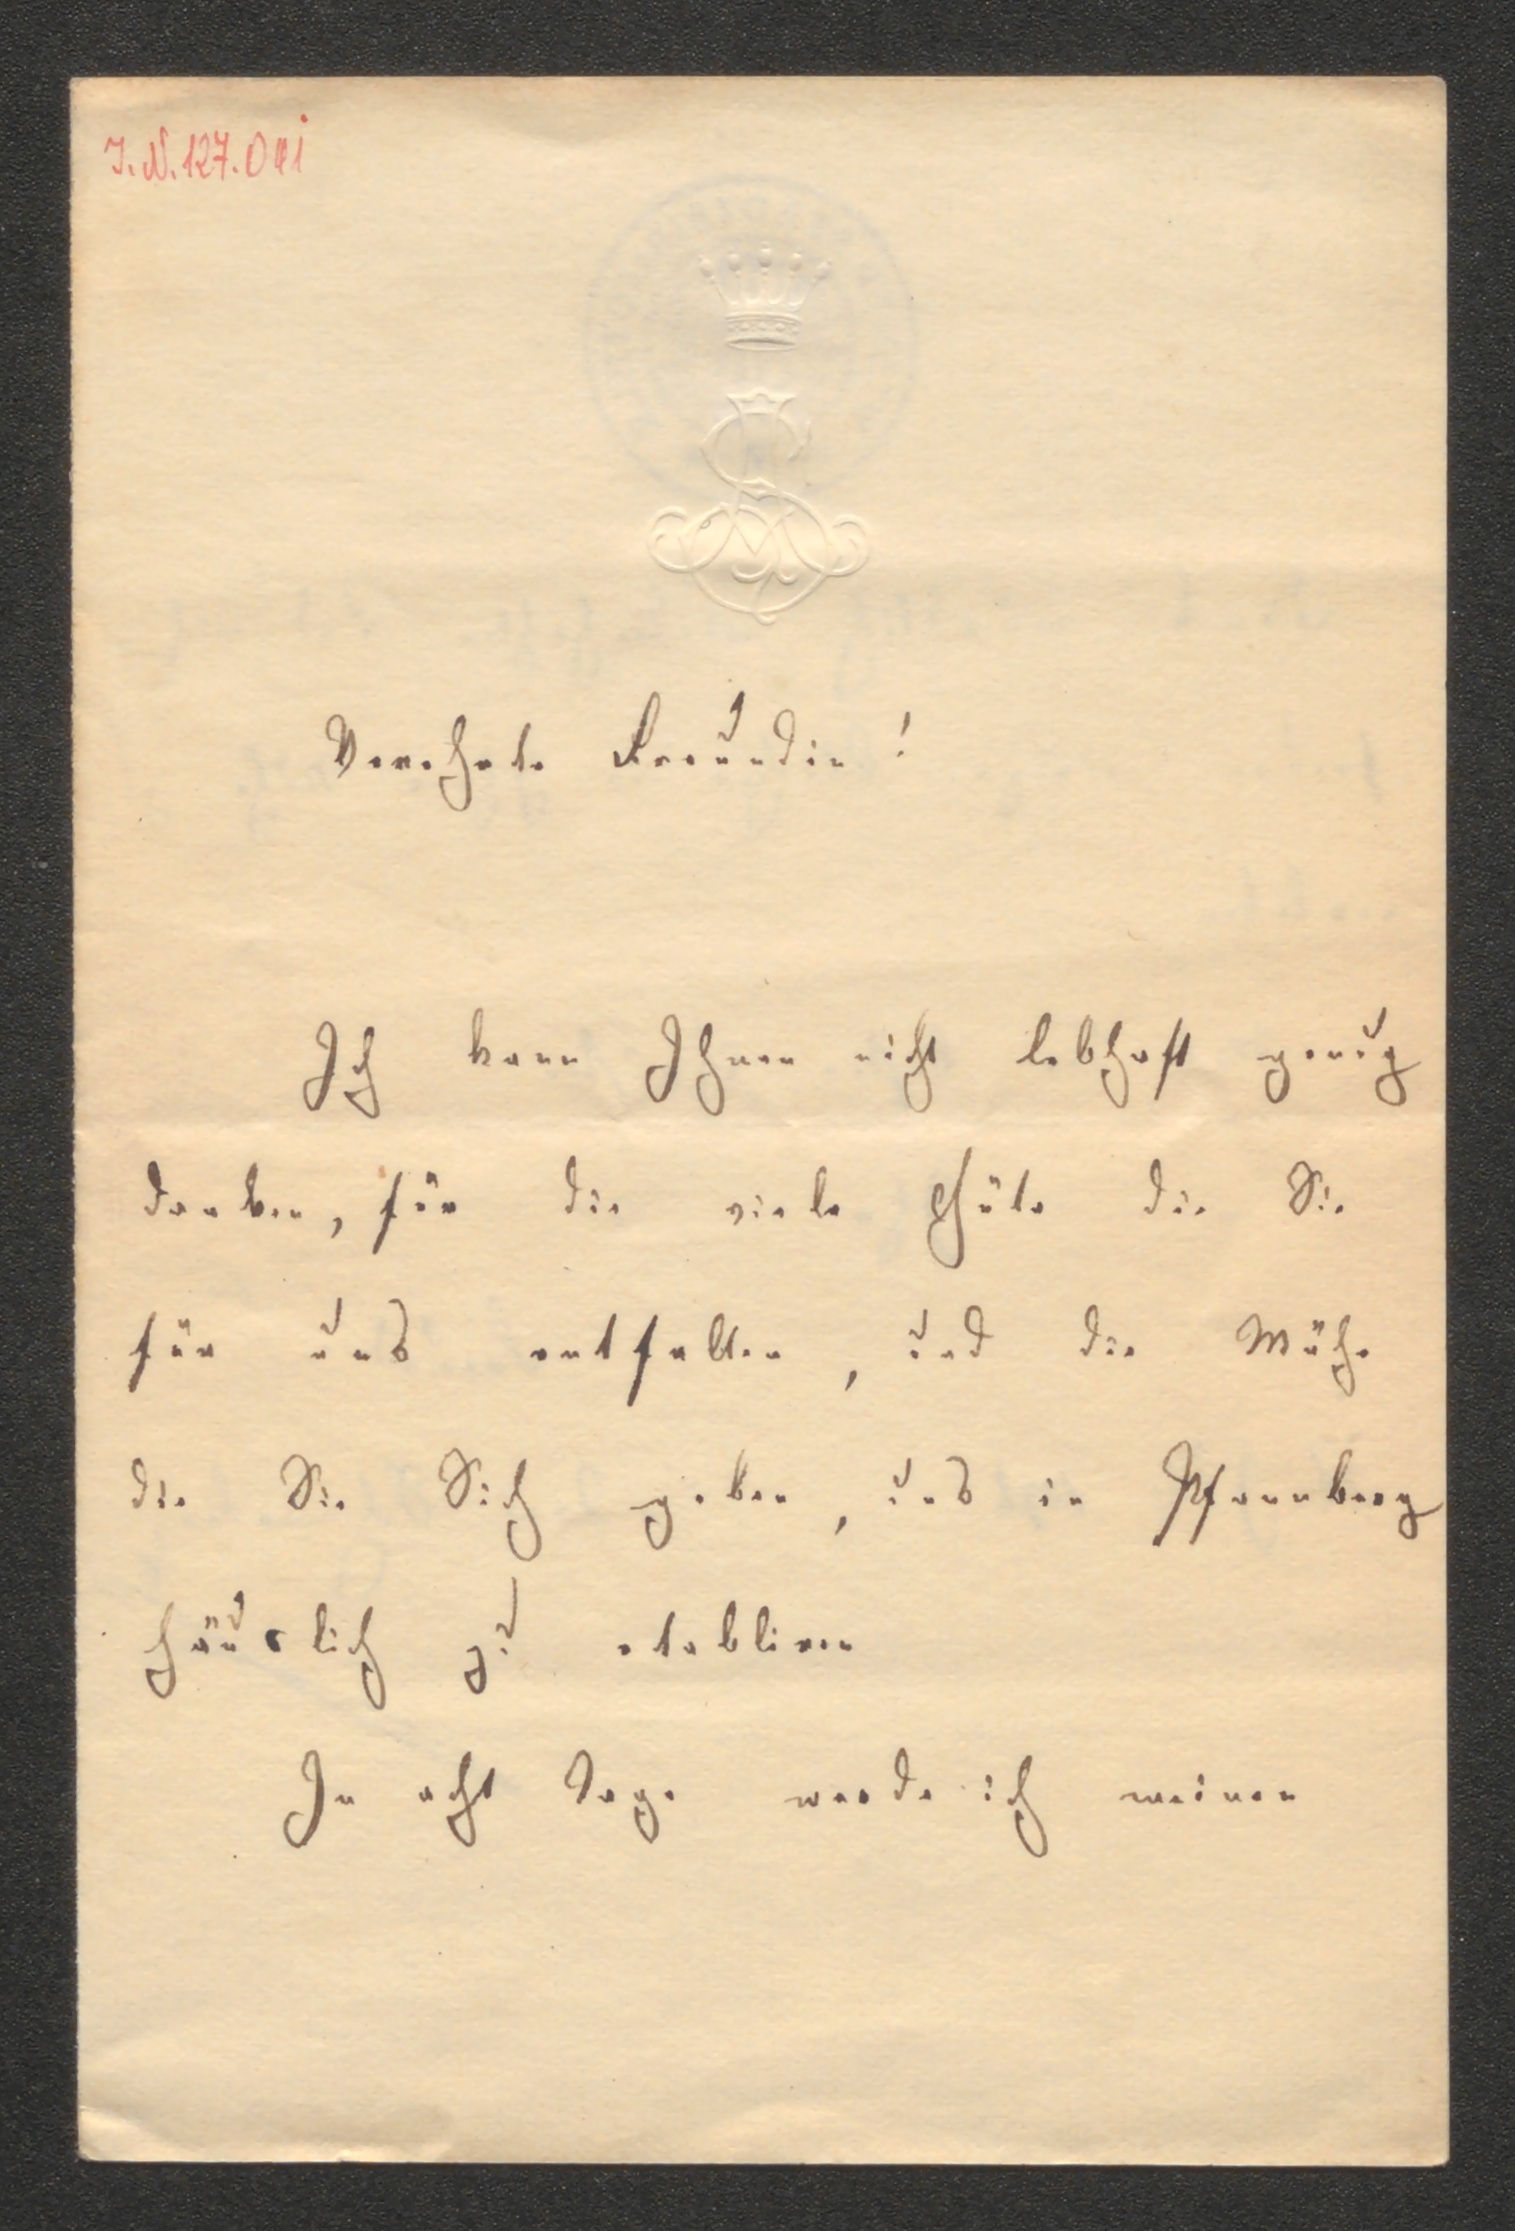 I. N. 127.041
Verehrte Freundin!
Ich kann Ihnen nicht lebhaft genug
danken, für die viele Güte die Sie
für uns entfalten, und die Mühe
die Sie Sich geben, uns in Pfannberg
häuslich zu etabliren
In acht Tage werde ich meinen